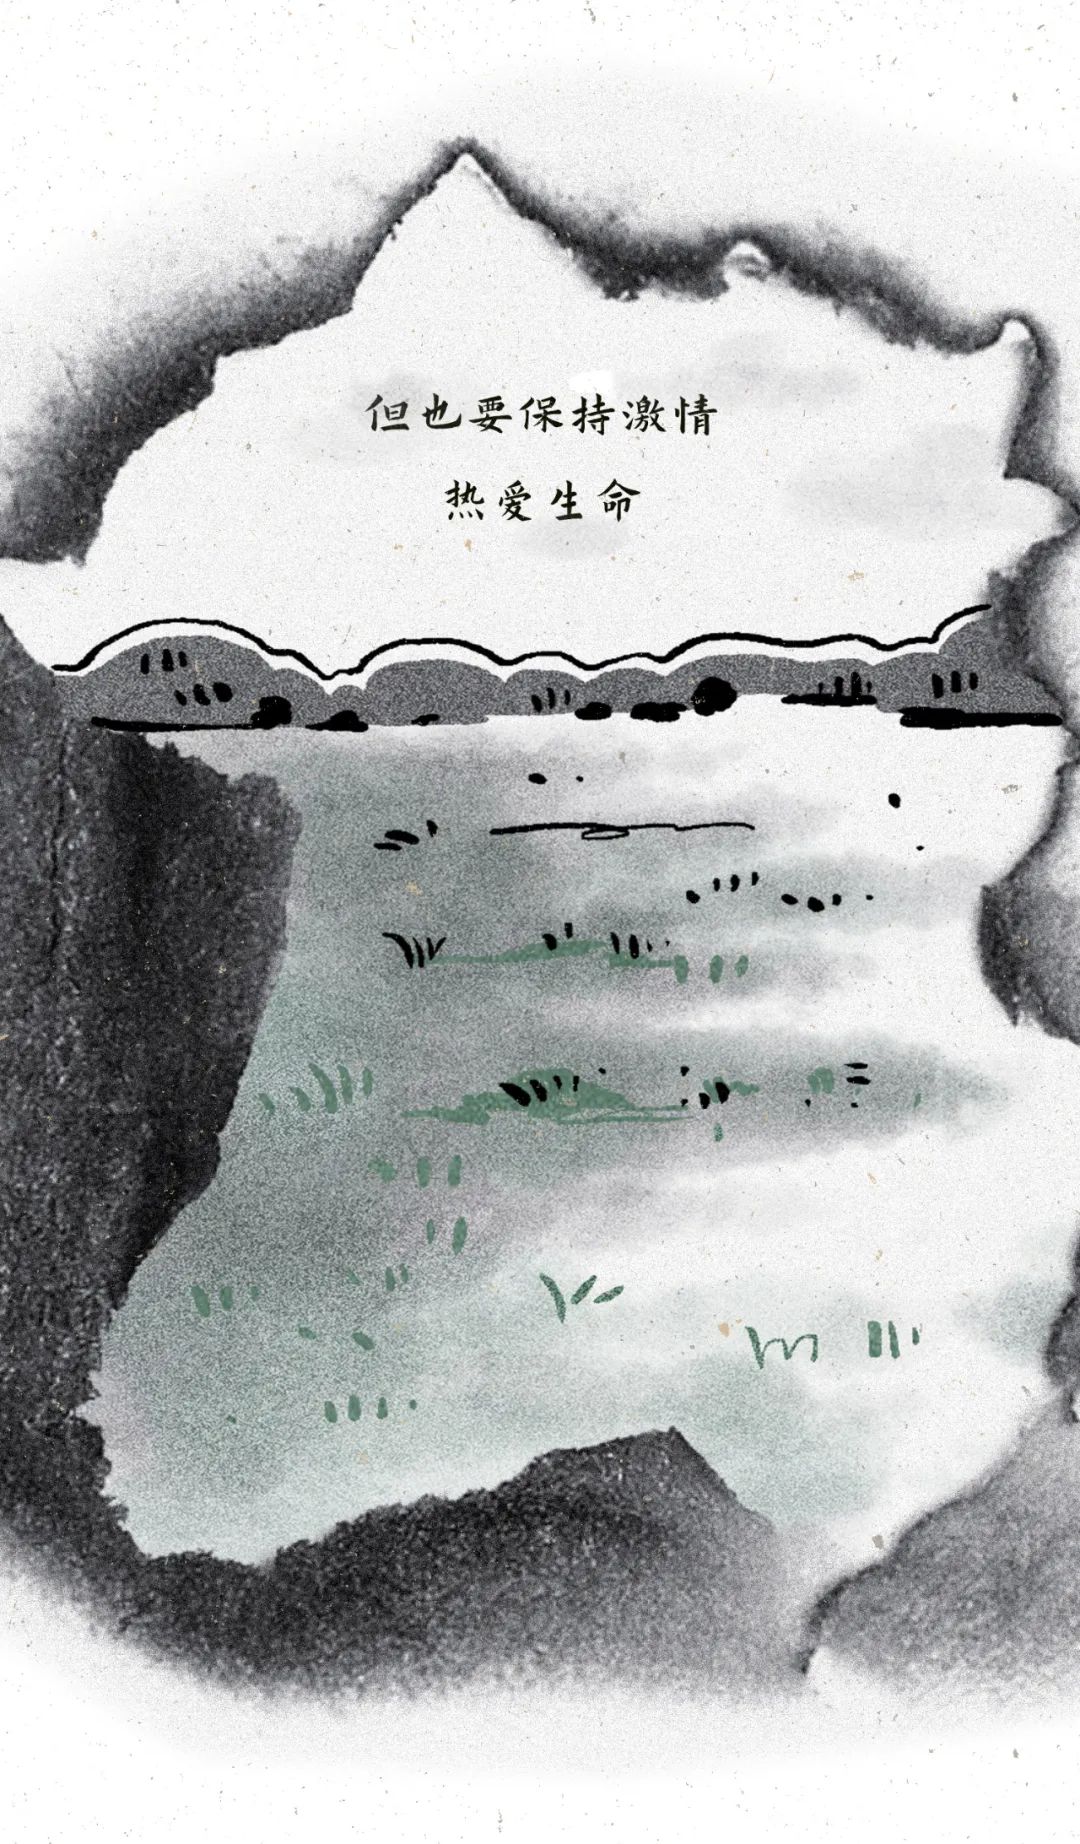 但也要保持激情
热爱生命